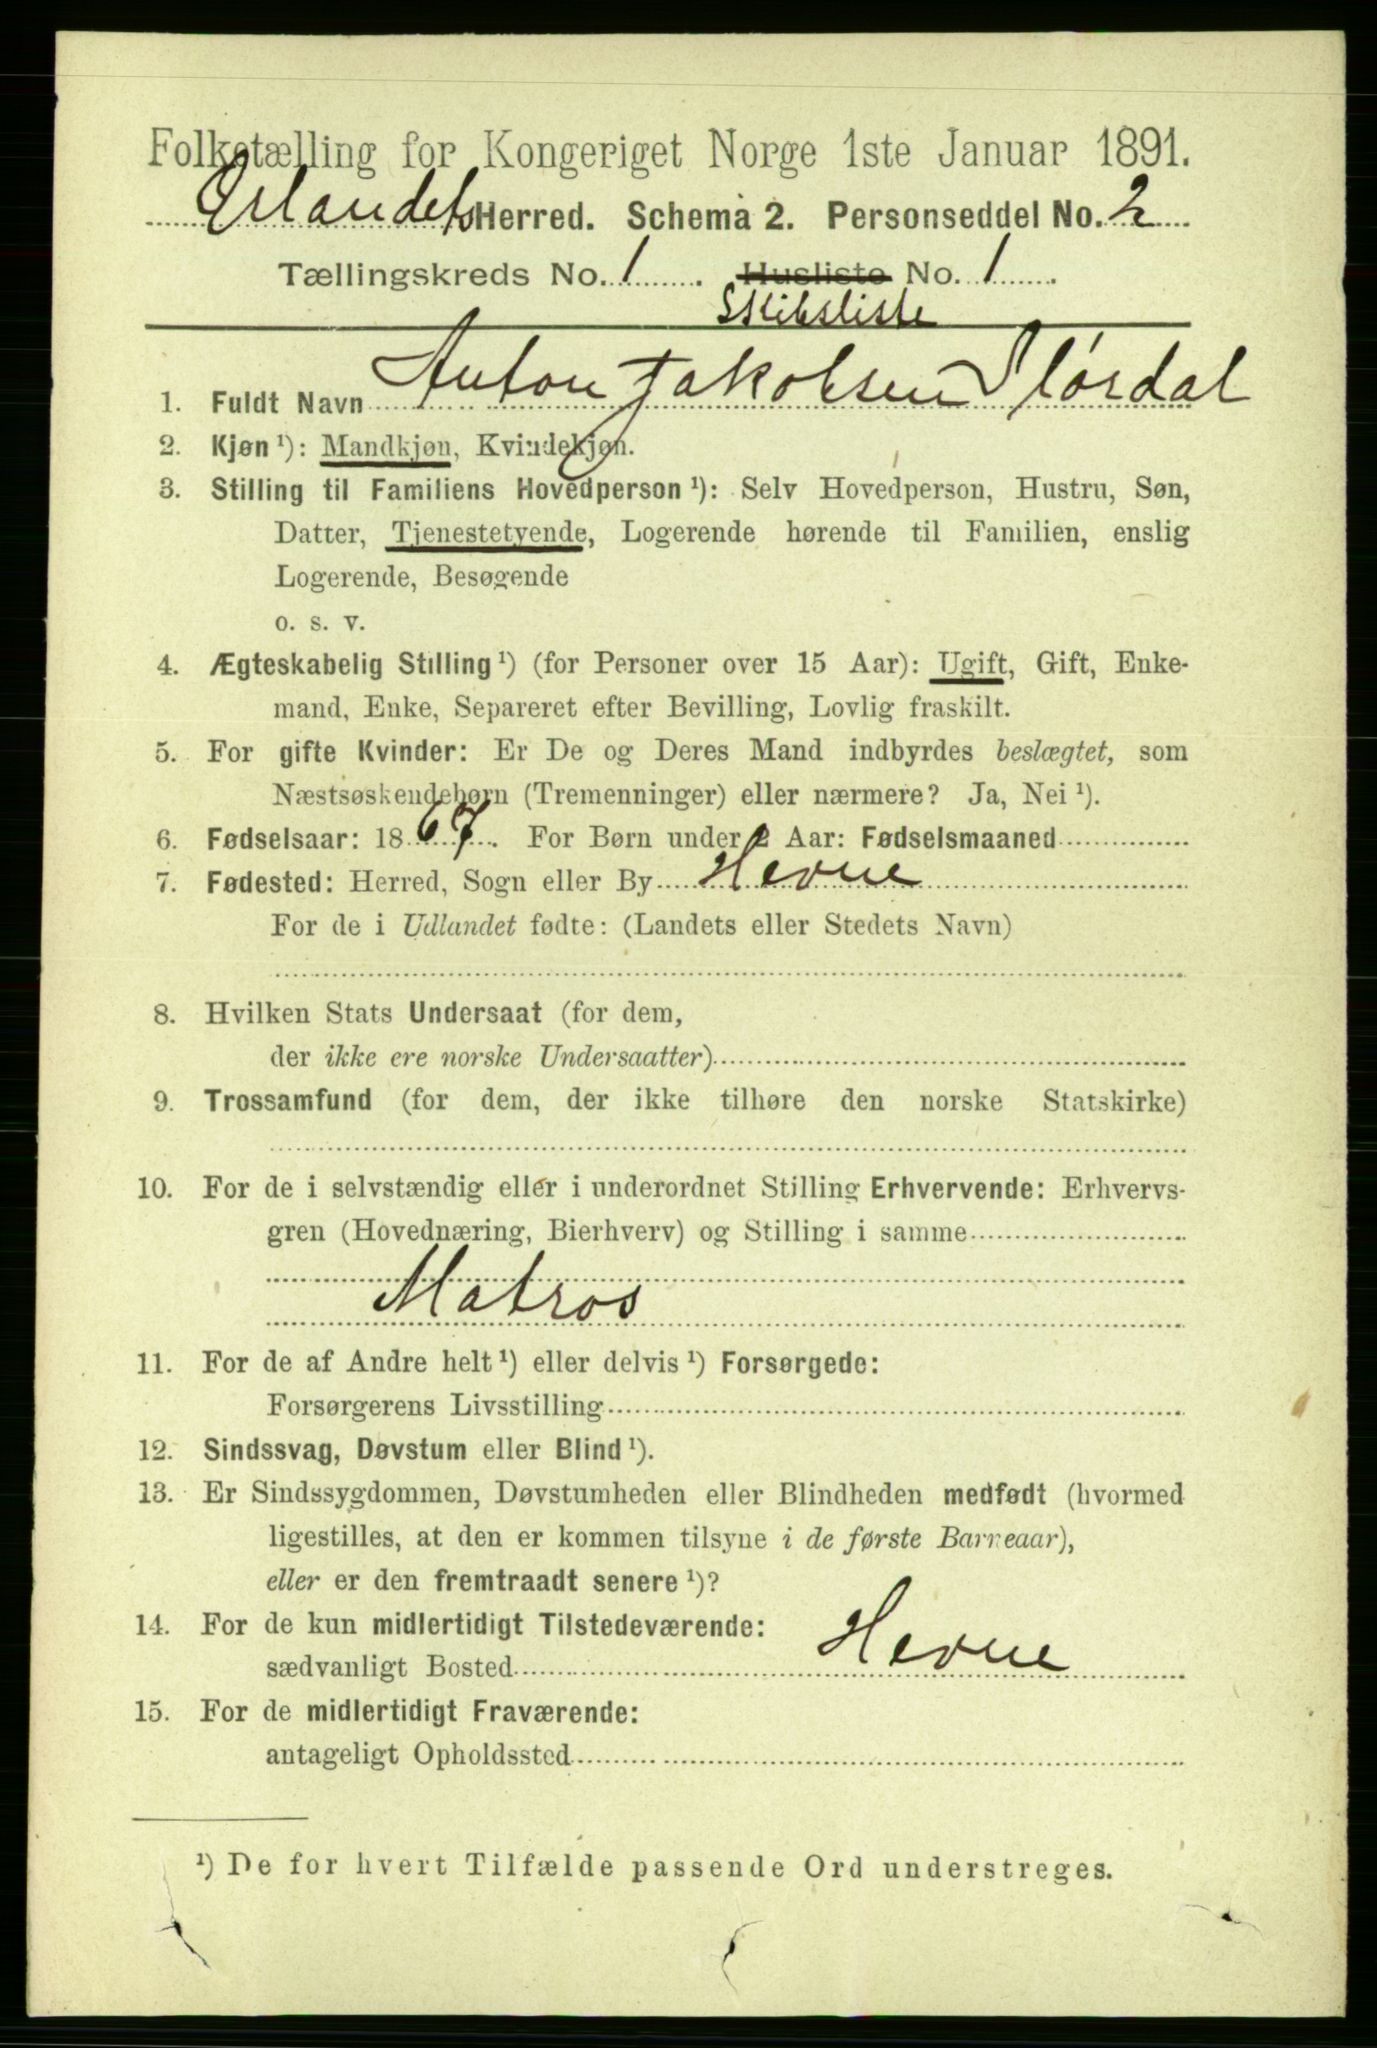 Folketælling for Kongeriget Norge 1ste Januar 1891.
Ørlandets Herred. Schema 2. Personseddel No. 2
Tællingskreds No. 1. Husliste No. 1.
Skibsliste
1. Fuldt Navn Anton Jakobsen Slørdal
2. Kjøn ¹): Mandkjøn, Kvindekjøn.
3. Stilling til Familiens Hovedperson ¹): Selv Hovedperson, Hustru, Søn,
Datter, Tjenestetyende, Logerende hørende til Familien, enslig
Logerende, Besøgende
o. s. v.
4. Ægteskabelig Stilling ¹) (for Personer over 15 Aar): Ugift, Gift, Enke-
mand, Enke, Separeret efter Bevilling, Lovlig fraskilt.
5. For gifte Kvinder: Er De og Deres Mand indbyrdes beslægtet, som
Næstsøskendebørn (Tremenninger) eller nærmere? Ja, Nei ¹).
6. Fødselsaar: 1867. For Børn under 2 Aar: Fødselsmaaned
7. Fødested: Herred, Sogn eller By Hevne
For de i Udlandet fødte: (Landets eller Stedets Navn)
8. Hvilken Stats Undersaat (for dem,
der ikke ere norske Undersaatter)
9. Trossamfund (for dem, der ikke tilhøre den norske Statskirke)
10. For de i selvstændig eller i underordnet Stilling Erhvervende: Erhvervs-
gren (Hovednæring, Bierhverv) og Stilling i samme
Matros
11. For de af Andre helt ¹) eller delvis ¹) Forsørgede:
Forsørgerens Livsstilling
12. Sindssvag, Døvstum eller Blind ¹).
13. Er Sindssygdommen, Døvstumheden eller Blindheden medfødt (hvormed
ligestilles, at den er kommen tilsyne i de første Barneaar),
eller er den fremtraadt senere ¹)?
14. For de kun midlertidigt Tilstedeværende:
sædvanligt Bosted Hevne
15. For de midlertidigt Fraværende:
antageligt Opholdssted
¹) De for hvert Tilfælde passende Ord understreges.